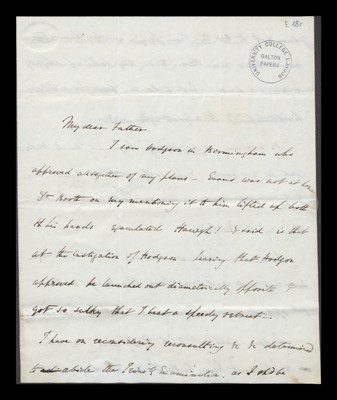 UNIVERSITY COLLEGE LONDON
GALTON
PAPERS
My dear Father
I saw Hodgson in Birmingham who
approved altogether of my plans – Evans was not at home
Dr Booth on my mentioning it to him lifted up both
his hands ejaculated Heavgh! & said is that
at the instigation of Hodgson. hearing that Hodgson
approved he launched out diametrically opposite &
got so sulky that I beat a speedy retreat –
I have on reconsidering reconsulting &c &c determined
to abide the Trin: Examination. as I shd be